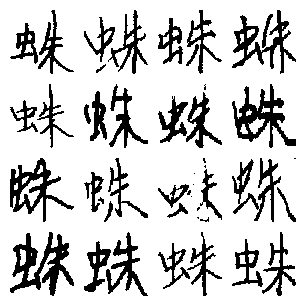 蛛蛛蛛蛛
蛛蛛蛛蛛
蛛蛛蛛蛛
蛛蛛蛛蛛